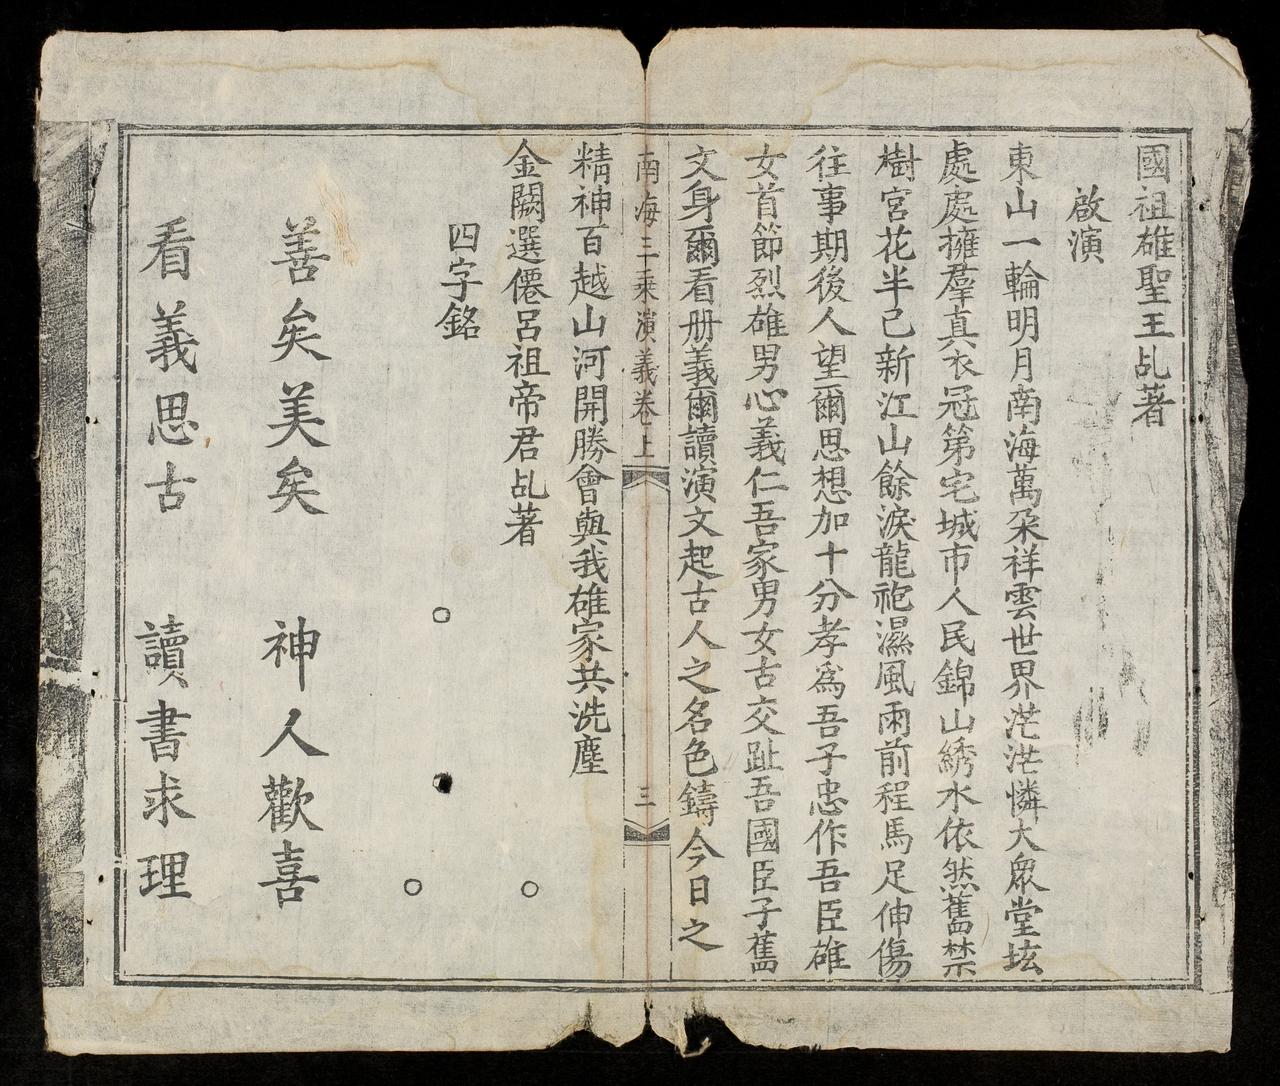 國祖雄聖王乩著
啟演
東山一輪明月南海萬朶祥雲世界茫茫憐大眾堂垓
處處擁羣真衣冠第宅城市人民錦山綉水依然舊禁
樹宮花半已新江山餘淚龍袍濕風雨前程馬足伸傷
往事期後人望爾思想加十分孝爲吾子忠作吾臣雄
女首節烈雄男心義仁吾家男女古交趾吾國臣子舊
文身爾看册義爾讀演文起古人之名色鑄今日之
南海三乘演義卷上 三
精神百越山河開勝會與我雄家共洗塵
金闕選僊呂祖帝君乩著
四字銘
善矣美矣 神人歡喜
看義思古 讀書求理